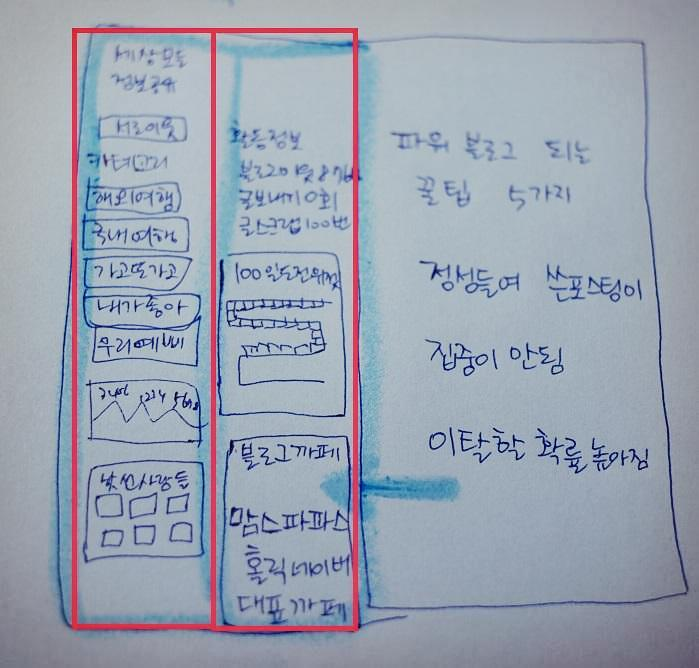 세상모든
정보공유
서로이웃
카테고리
해외여행
국내여행
가고또가고
내가좋아
우리예삐
1234
낯선사람들
활동정보
블로그이웃 87명
글보내기 0회
글스크랩 100번
100일도전위젯
블로그카페
맘스파파스
홀릭네이버
대표까페
파워 블로그 되는
꿀팁 5가지
정성들여 쓴포스팅이
집중이 안됨
이탈할 확률높아짐